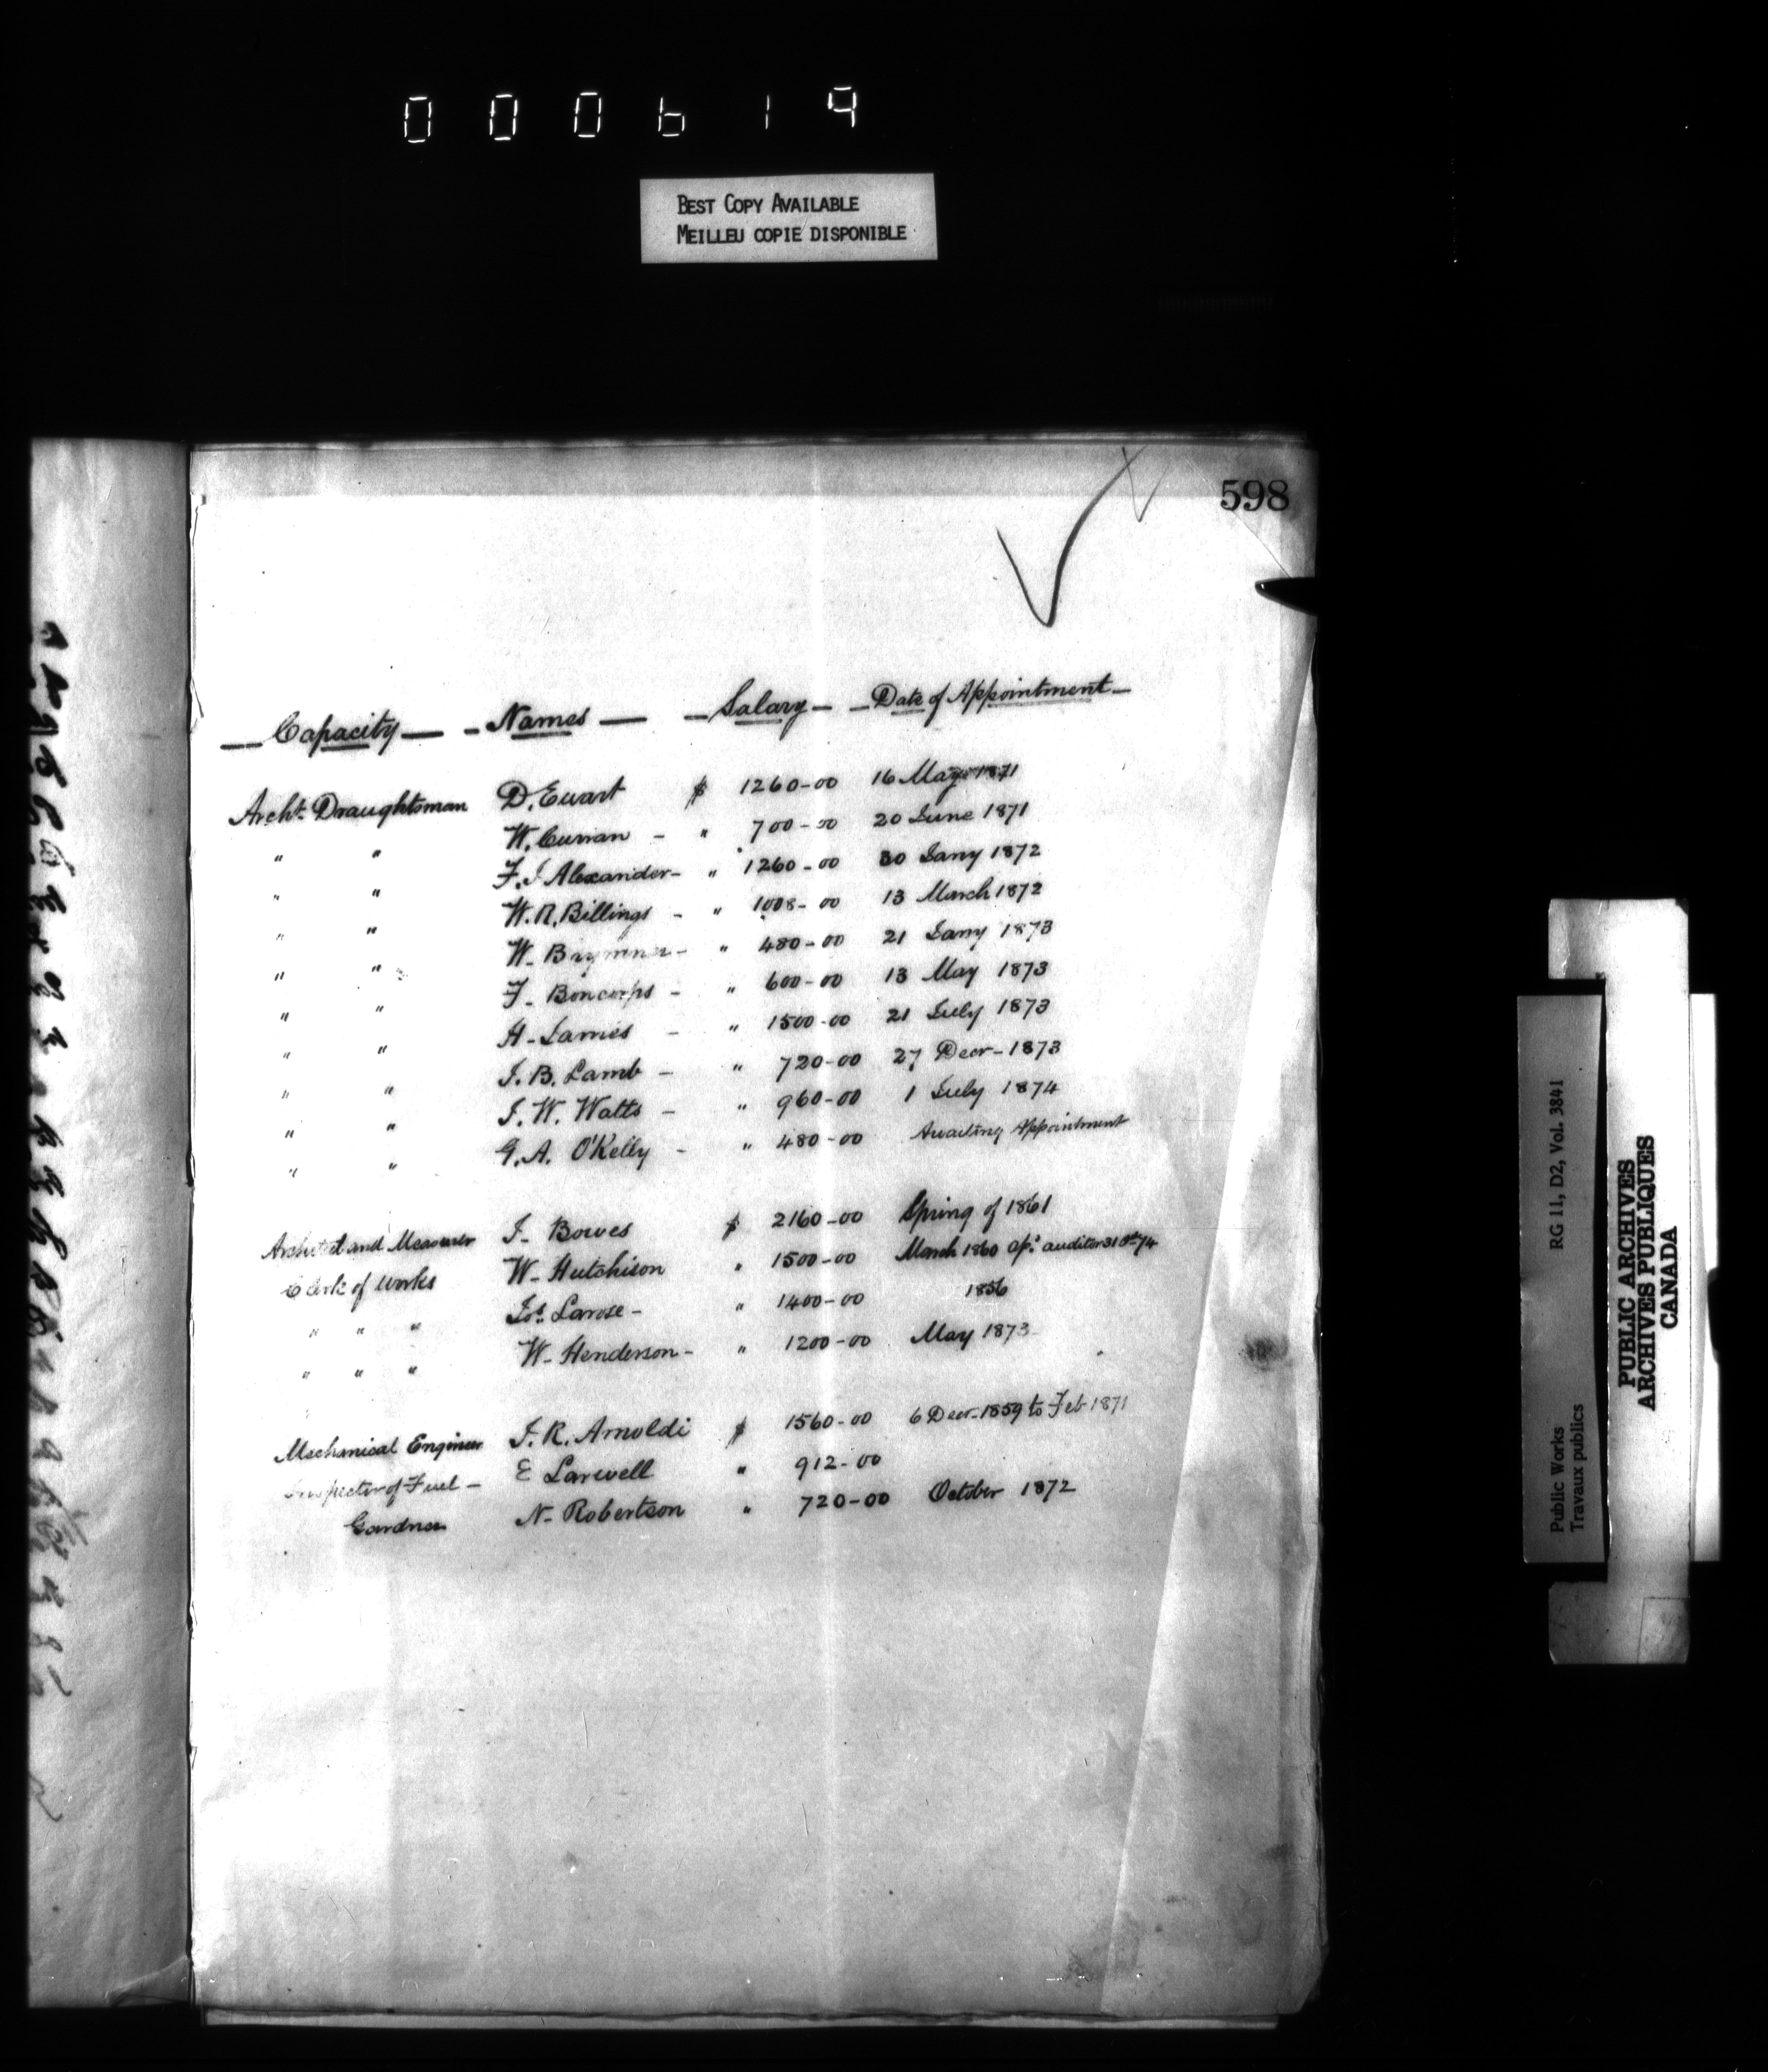 000619
BEST COPY AVAILABLE
MEILLEU COPIE DISPONIBLE
598
Capacity — Names — Salary — Date of Appointment —
Archt. Draughtsman D. Ewart $ 1260-00 16 May 1871
" " W. Curran - " 700-00 20 June 1871
" " F. J Alexander - " 1260-00 30 Jany 1872
" " W. R. Billings - " 1008-00 13 March 1872
" " W. Brymner - " 480-00 21 Jany 1873
" " F. Boncorps - " 600-00 13 May 1873
" " H. James - " 1500-00 21 July 1873
" " J. B. Lamb - " 720-00 27 Decr - 1873
" " J. W. Watts - " 960-00 1 July 1874
" " G. A. O'Kelly - " 480-00 Awaiting Appointment
Architect and Measurer J. Bowes $ 2160-00 Spring of 1861
Clerk of works W. Hutchison " 1500-00 March 1860 auditor 31
" " " Jos. Larose - " 1400-00 1856
" " " W. Henderson - " 1200-00 May 1873
Mechanical Engineer J. R. Arnoldi $ 1560-00 6 Decr - 1859 to Feb 1871
Inspector of Fuel - E Larwell " 912-00
Gardner N. Robertson " 720-00 October 1872
Public Works RG 11, D2, Vol. 3841
Travaux publics
PUBLIC ARCHIVES
ARCHIVES PUBLIQUES
CANADA